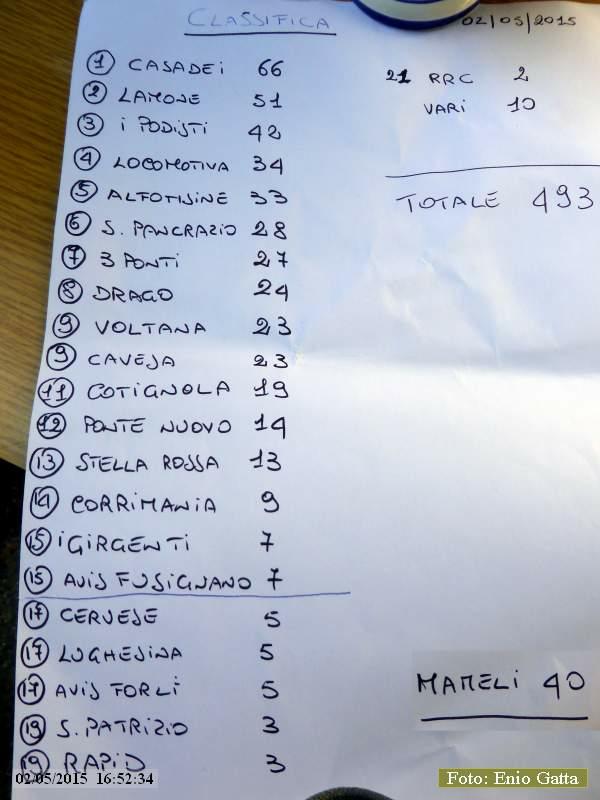 CLASSIFICA
02/05/2015
1 CASADEI 66
2 LAMONE 51
3 I PODISTI 42
4 LOCOMOTIVA 34
5 ALFOTISINE 33
6 S. PANCRAZIO 28
7 3 PONTI 27
8 DRAGO 24
9 VOLTANA 23
9 CAVEJA 23
11 COTIGNOLA 19
12 PONTE NUOVO 14
13 STELLA ROSSA 13
14 CORRIMANIA 9
15 I GIRGENTI 7
15 AVIS FUSIGNANO 7
17 CERVESE 5
17 LUGHESINA 5
17 AVIS FORLÌ 5
19 S. PATRIZIO 3
19 RAPID 3
21 RRC 2
VARI 10
TOTALE 493
MAMELI 40
02/05/2015 16:52:34
Foto: Enio Gatta